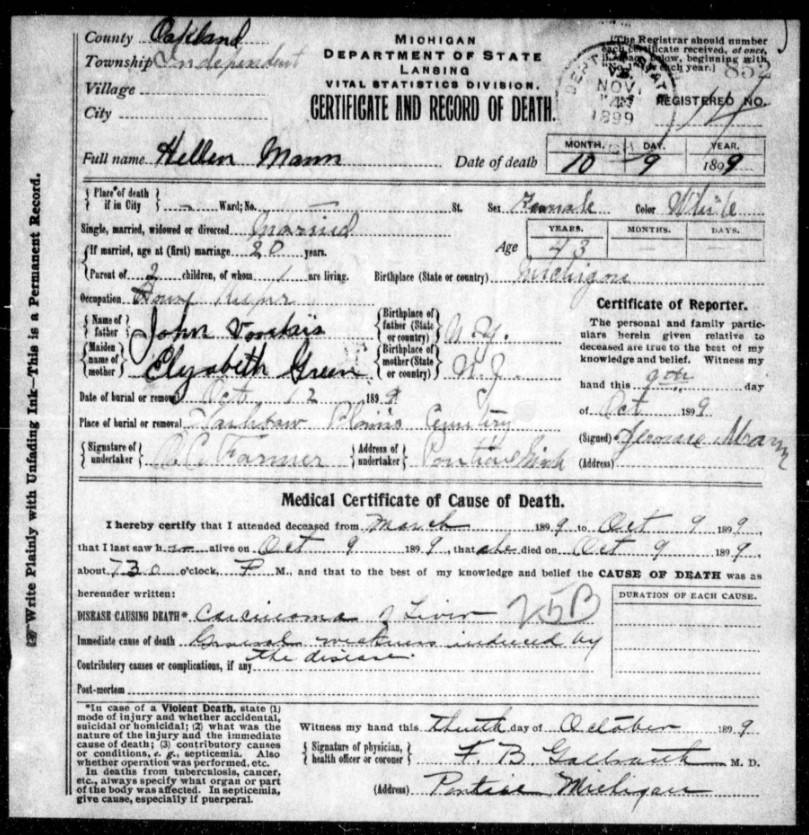 County Oakland
Township Independent
Village
City
MICHIGAN
DEPARTMENT OF STATE
LANSING
VITAL STATISTICS DIVISION.
CERTIFICATE AND RECORD OF DEATH.
[The Registrar should number
each certificate received, at once,
beginning with
each year.]
852
NOV
1899
REGISTERED NO.
Full name Hellen Mann Date of death
MONTH. DAY. YEAR.
10 9 1899
Place of death if in City Ward; No. St. Sex Female Color White
Single, married, widowed or divorced Married
If married, age at (first) marriage 20 years.
Age YEARS. MONTHS. DAYS.
43
Parent of 2 children, of whom 1 are living. Birthplace (State or country) Michigan
Occupation House Keeper
Name of father John Birthplace of father (State or country) N.Y.
Maiden name of mother Elyzabeth Green Birthplace of mother (State or country) N.J.
Date of burial or removal Oct 12 1899
Place of burial or removal Plains Cemetry
Signature of undertaker Farmer Address of undertaker Pontiac Mich
Certificate of Reporter.
The personal and family particu-
lars herein given relative to
deceased are true to the best of my
knowledge and belief. Witness my
hand this day
of Oct 1899
(Signed) Jerome Mann
(Address)
Medical Certificate of Cause of Death.
I hereby certify that I attended deceased from March 1899 to Oct 9 1899,
that I last saw her alive on Oct 9 1899, that she died on Oct 9 1899,
about 730 o'clock P M., and that to the best of my knowledge and belief the CAUSE OF DEATH was as
hereunder written:
DURATION OF EACH CAUSE.
DISEASE CAUSING DEATH* Carcinoma of Liver 25B
Immediate cause of death General weakness induced by
the disease.
Contributory causes or complications, if any
Post-mortem
*In case of a Violent Death, state (1)
mode of injury and whether accidental,
suicidal or homicidal; (2) what was the
nature of the injury and the immediate
cause of death; (3) contributory causes
or conditions, e. g., septicemia. Also
whether operation was performed, etc.
In deaths from tuberculosis, cancer,
etc., always specify what organ or part
of the body was affected. In septicemia,
give cause, especially if puerperal.
Witness my hand this day of October 1899
Signature of physician, health officer or coroner F. B. Galbraith M. D.
(Address) Pontiac Michigan
Write Plainly with Unfading Ink—This is a Permanent Record.